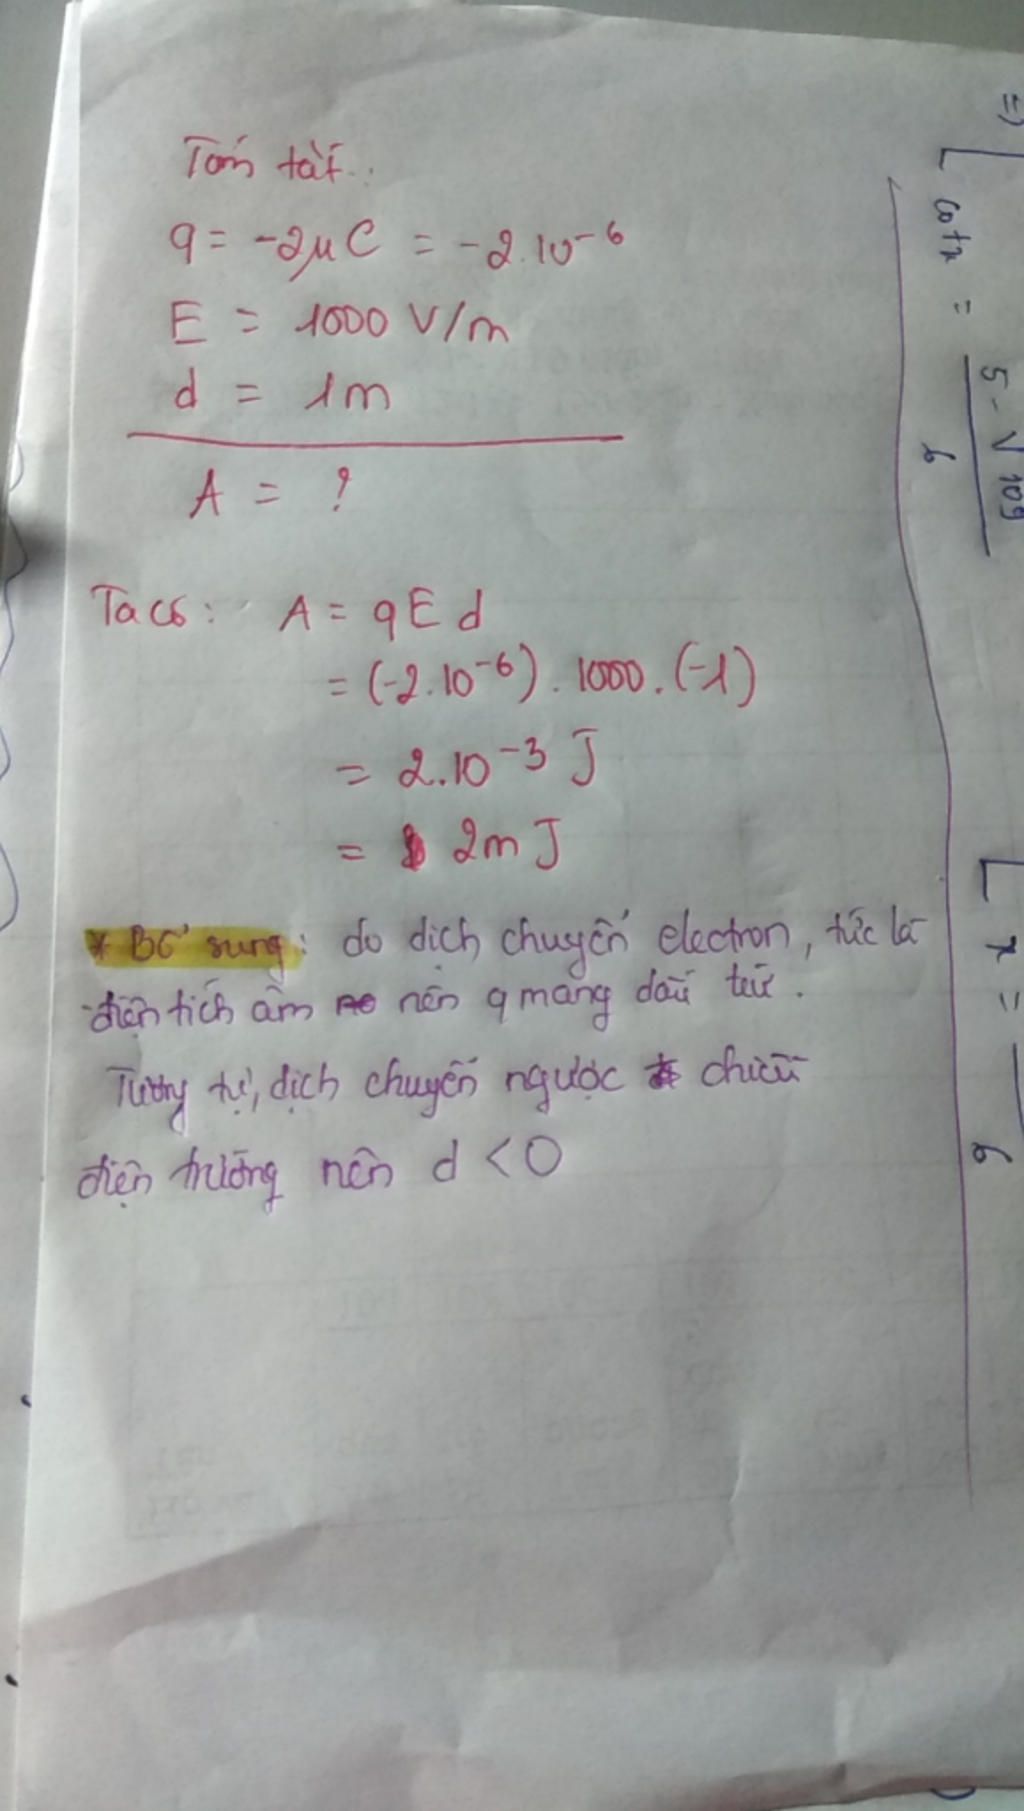 Tóm tắt:
q = -2μC = -2.10⁻⁶
E = 1000 V/m
d = 1m
A = ?
Ta có: A = qEd
= (-2.10⁻⁶).1000.(-1)
= 2.10⁻³ J
= 2mJ
* Bổ sung: do dịch chuyển electron, tức là
điện tích âm nên q mang dấu trừ.
Tương tự, dịch chuyển ngược chiều
điện trường nên d < 0
=> [ cotx = (5 - √109)/6
[ x =
6